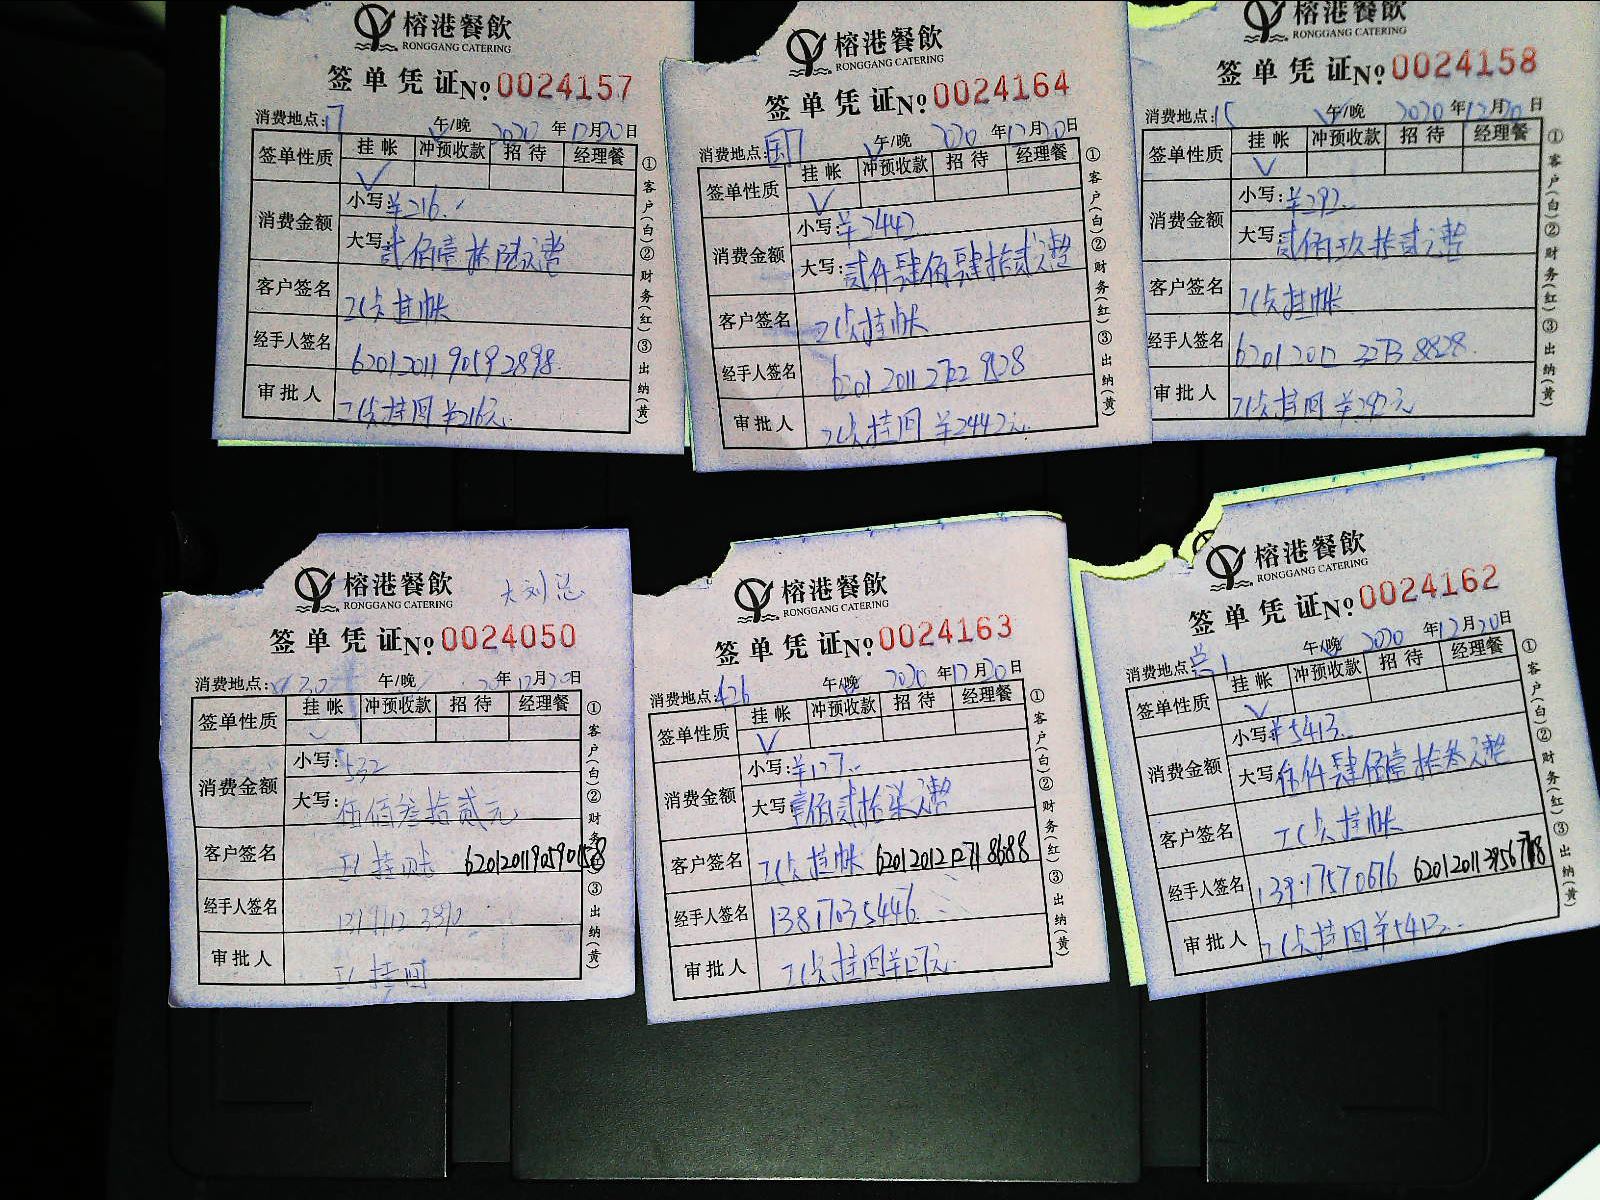 榕港餐飲
RONGGANG CATERING
签单凭证 No 0024157
消费地点:17 午/晚 2020年12月20日
签单性质 挂帐 冲预收款 招待 经理餐
√
消费金额 小写:¥216.
大写:贰佰壹拾陆元整
客户签名 工点挂帐
经手人签名
审批人 工点挂回¥216元.
①客户(白)②财务(红)③出纳(黄)
榕港餐飲
RONGGANG CATERING
签单凭证 No 0024164
消费地点: 午/晚 2020年12月20日
签单性质 挂帐 冲预收款 招待 经理餐
√
消费金额 小写:¥2442
大写:贰仟肆佰肆拾贰元整
客户签名 工点挂帐
经手人签名
审批人 工点挂回¥2442元.
①客户(白)②财务(红)③出纳(黄)
榕港餐飲
RONGGANG CATERING
签单凭证 No 0024158
消费地点:15 午/晚 2020年12月20日
签单性质 挂帐 冲预收款 招待 经理餐
√
消费金额 小写:¥292.
大写:贰佰玖拾贰元整
客户签名 工点挂帐
经手人签名
审批人 工点挂回¥292元
①客户(白)②财务(红)③出纳(黄)
榕港餐飲 大刘总
RONGGANG CATERING
签单凭证 No 0024050
消费地点: 午/晚 20年12月20日
签单性质 挂帐 冲预收款 招待 经理餐
消费金额 小写:532
大写:伍佰叁拾贰元
客户签名
经手人签名
审批人
①客户(白)②财务 ③出纳(黄)
榕港餐飲
RONGGANG CATERING
签单凭证 No 0024163
消费地点:426 午/晚 2020年12月20日
签单性质 挂帐 冲预收款 招待 经理餐
√
消费金额 小写:¥127..
大写:壹佰贰拾柒元整
客户签名 工点挂帐 6201201212718688
经手人签名 13817035446
审批人 工点挂回¥127元.
①客户(白)②财务(红)③出纳(黄)
榕港餐飲
RONGGANG CATERING
签单凭证 No 0024162
消费地点: 午/晚 2020年12月20日
签单性质 挂帐 冲预收款 招待 经理餐
√
消费金额 小写:¥5413..
大写:伍仟肆佰壹拾叁元整
客户签名 工点挂帐
经手人签名 13917570676
审批人 工点挂回¥5413..
①客户(白)②财务(红)③出纳(黄)